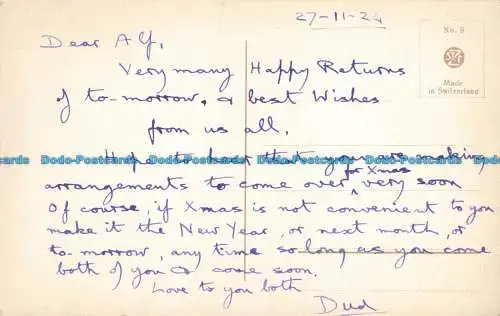 27-11-24
No. 9
Made
in Switzerland
Dear Alf,
Very many Happy Returns
of to-morrow, & best Wishes
from us all.
Hope to hear that you are making
for Xmas
arrangements to come over very soon
Of course, if Xmas is not convenient to you
make it the New Year, or next month, or
to-morrow, any time so long as you come
both of you & come soon.
Love to you both
Dud
Dodo-Postcards Dodo-Postcards Dodo-Postcards Dodo-Postcards